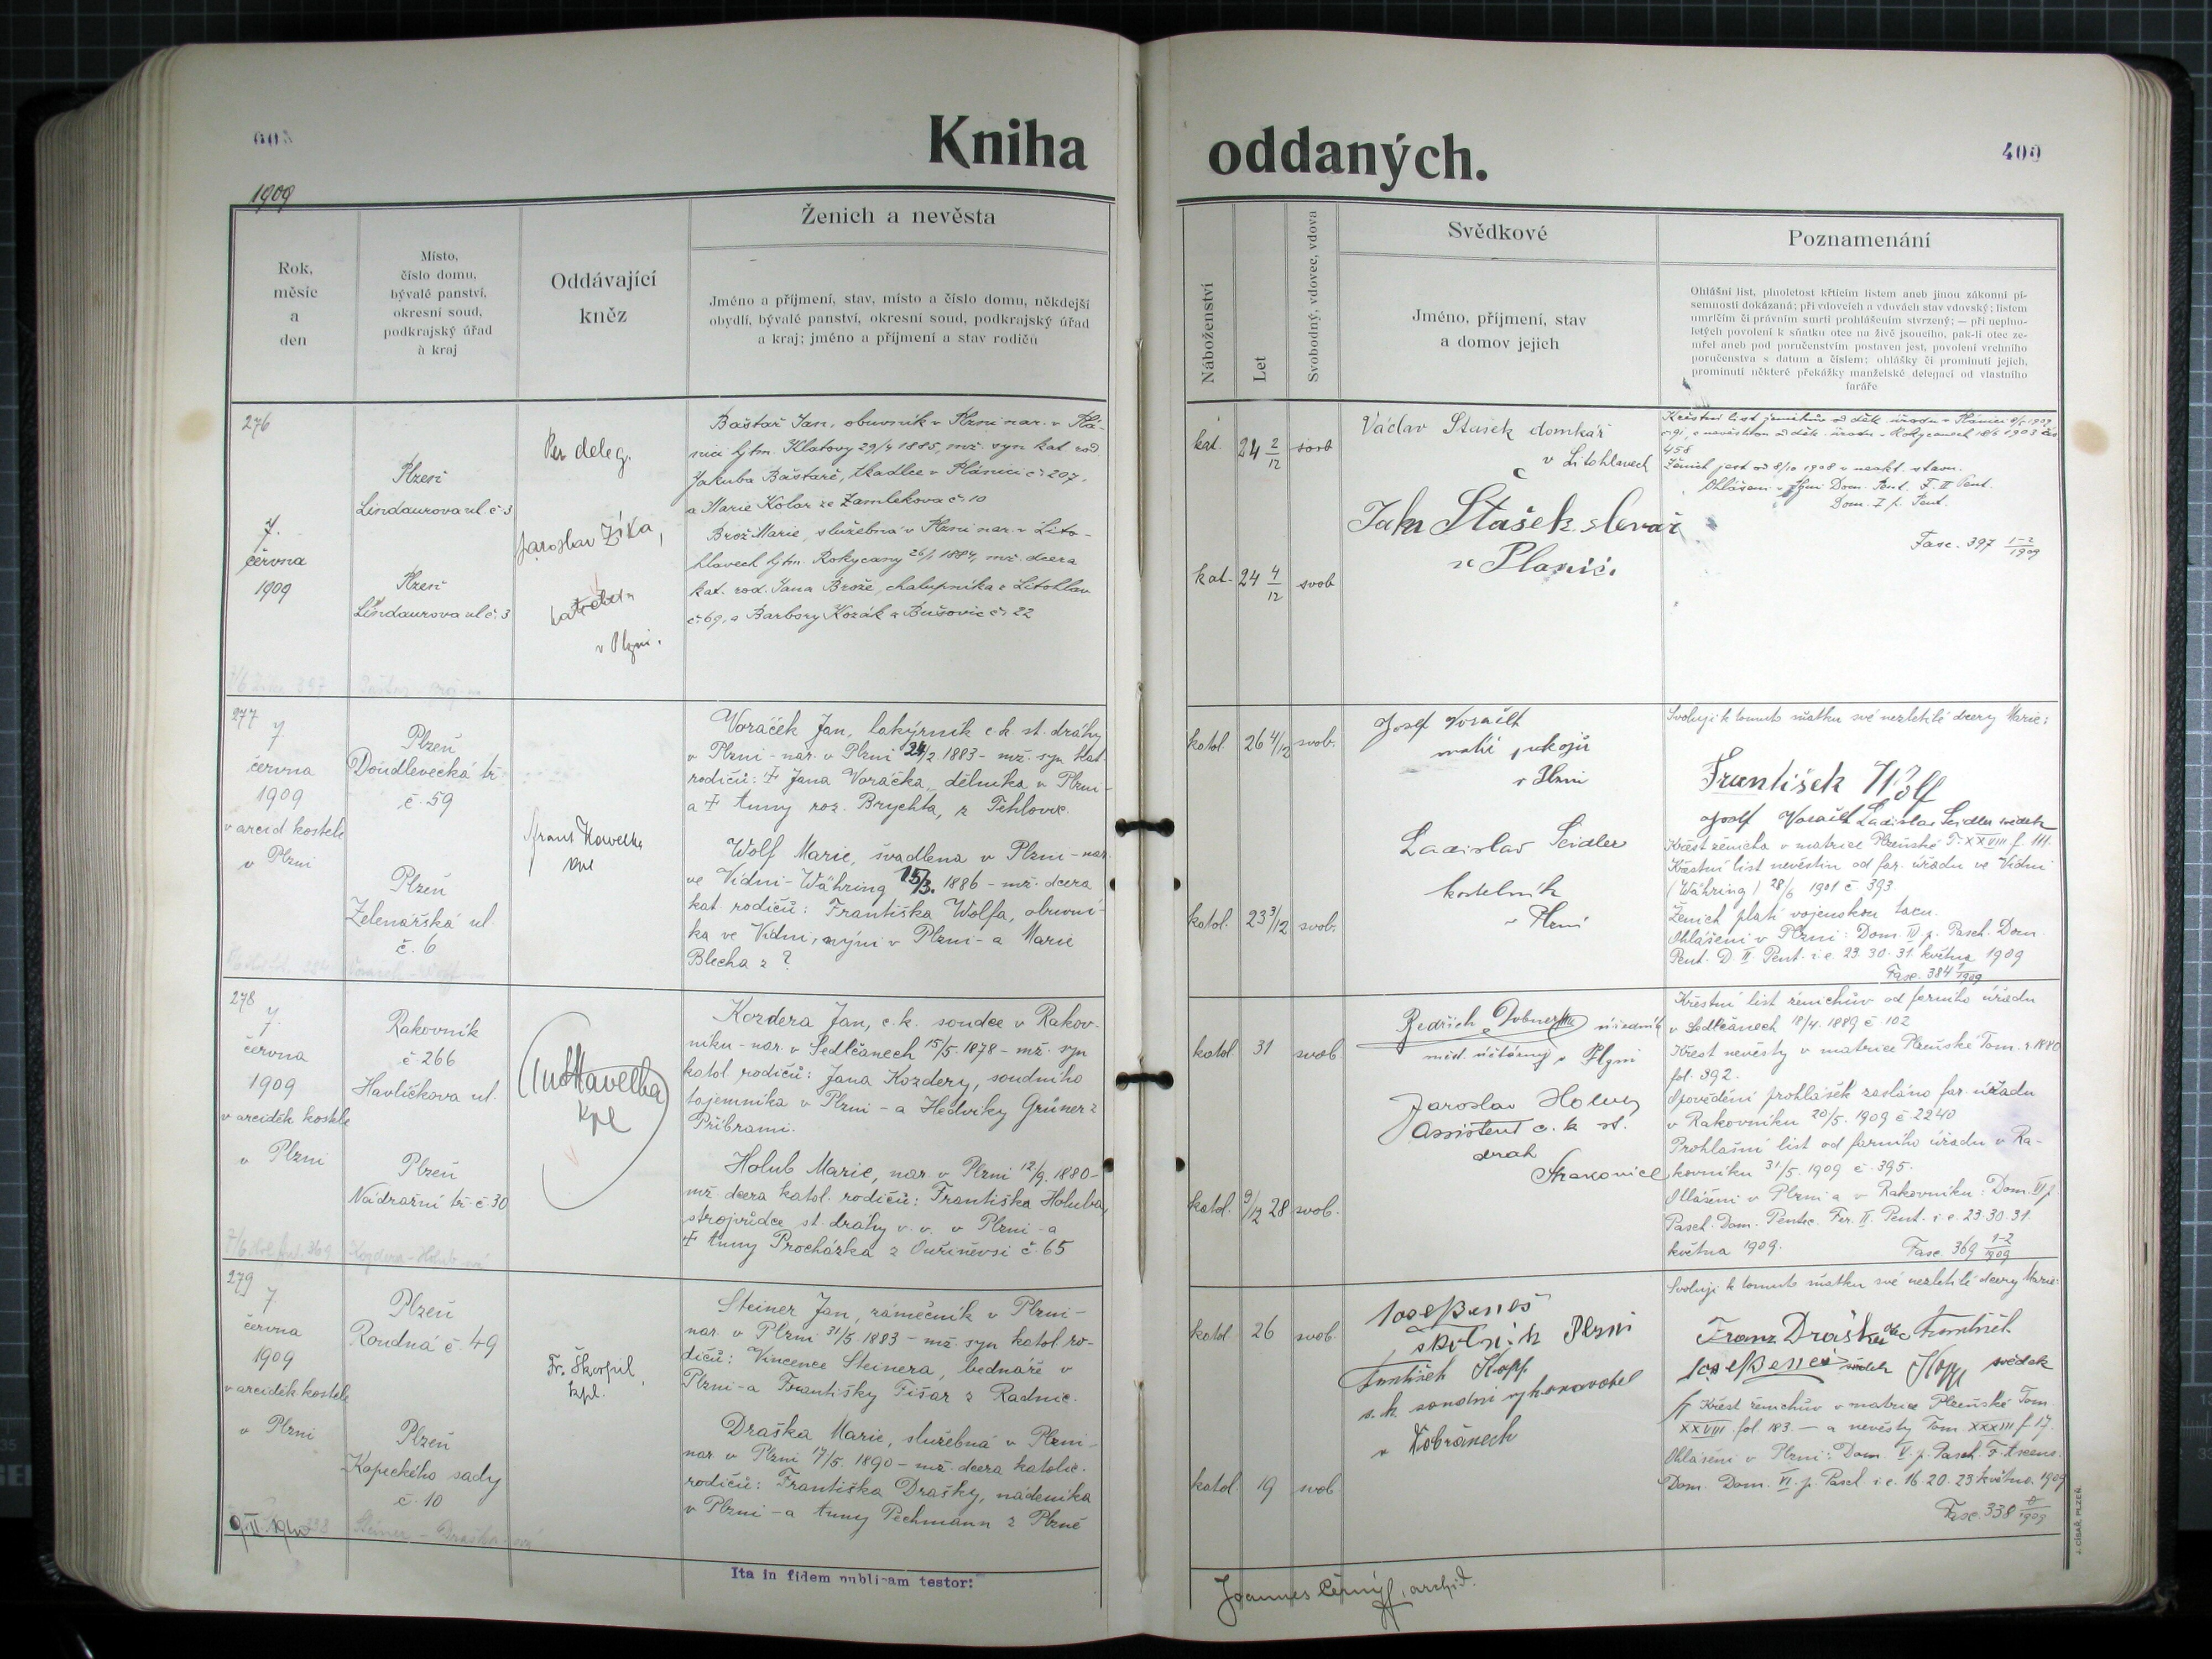 Kniha oddaných.
409
1909
Rok,
měsíc
a
den
Místo,
číslo domu,
bývalé panství,
okresní soud,
podkrajský úřad
a kraj
Oddávající
kněz
Ženich a nevěsta
Jméno a příjmení, stav, místo a číslo domu, někdejší
obydlí, bývalé panství, okresní soud, podkrajský úřad
a kraj; jméno a příjmení a stav rodičů
Náboženství
Let
Svobodný, vdovec, vdova
Svědkové
Jméno, příjmení, stav
a domov jejich
Poznamenání
Ohlášní list, plnoletost křticím listem aneb jinou zákonní pí-
semností dokázaná; při vdovcích a vdovách stav vdovský; listem
umrlčím či právním smrti prohlášením stvrzený; — při neplno-
letých povolení k sňatku otce na živě jsoucího, pak-li otec ze-
mřel aneb pod poručenstvím postaven jest, povolení vrchního
poručenstva s datum a číslem; ohlášky či prominutí jejich,
prominutí některé překážky manželské delegací od vlastního
faráře
276
7.
června
1909
Plzeň
Lindaurova ul. č. 3
Plzeň
Lindaurova ul. č. 3
Per deleg.
Jaroslav Zíka,
v Plzni.
Baštař Jan, obuvník v Plzni nar. v Plá-
nici hjtm. Klatovy 29/4 1885, mž. syn kat. rod.
Jakuba Baštaře, tkadlce v Plánici č. 207,
a Marie Kolar ze Zamlekova č. 10
Brož Marie, služebná v Plzni nar. v Lito-
hlavech hjtm. Rokycany 26/1 1884, mž. dcera
kat. rod. Jana Brože, chalupníka z Litohlav
č. 69, a Barbory Kozák z Bušovic č. 22
kat. 24 2/12 svob
kat. 24 4/12 svob
Václav Stašek domkář
v Litohlavech
Stašek slevač
v Plánici
Ženich jest od 8/10 1908 v neakt. stavu.
Dom. I p. Pent.
Fasc. 397 1-2/1909
277
7
června
1909
v arcid kostele
v Plzni
Plzeň
Doudlevecká tř.
č. 59
Plzeň
Zelenářská ul.
č. 6
Frant Havelka
kpl
Voráček Jan, lakýrník c. k. st. dráhy
v Plzni - nar. v Plzni 24/2 1883 - mž. syn kat.
rodičů: † Jana Voráčka, dělníka v Plzni -
a † Anny roz. Brychta, z Tehlovic.
Wolf Marie, švadlena v Plzni - nar.
ve Vídni - Währing 15/3. 1886 - mž. dcera
kat. rodičů: Františka Wolfa, obuvní-
ka ve Vídni, nyní v Plzni - a Marie
Blecha z ?
katol. 26 4/12 svob.
katol. 23 3/12 svob.
Josef Voráček
malíř pokojů
v Plzni
Ladislav Seidler
kostelník
v Plzni
Svoluji k tomuto sňatku své nezletilé dcery Marie:
František Wolf
Josef Voráček Ladislav Seidler svědek
Křest ženicha v matrice Plzeňské T. XXVIII f. 111.
Křestní list nevěstin od far. úřadu ve Vídni
(Währing) 28/6 1901 č 393
Ženich platí vojenskou tacu.
Ohlášeni v Plzni: Dom. IV p. Pasch. Dom.
Pent. D. II Pent. i. e. 23. 30. 31. května 1909
Fasc. 384 1/1909
278
7.
června
1909
v arciděk kostele
v Plzni
Rakovník
č. 266
Havlíčkova ul.
Plzeň
Nádražní tř. č. 30
Havelka
kpl
Kozdera Jan, c. k. soudce v Rakov-
níku - nar. v Sedlčanech 15/5. 1878 - mž. syn
katol. rodičů: Jana Kozdery, soudního
tajemníka v Plzni - a Hedviky Grüner z
Příbrami.
Holub Marie, nar. v Plzni 12/9. 1880 -
mž. dcera katol. rodičů: Františka Holuba,
strojvůdce st. dráhy v. v. v Plzni - a
† Anny Procházka z Ouřiněvsi č. 65
katol. 31 svob.
katol. 9/12 28 svob.
Bedřich úředník
v Plzni
Jaroslav
Assistent c. k. st.
drah
Strakonice
Křestní list ženichův od farního úřadu
v Sedlčanech 18/4. 1889 č 102
Křest nevěsty v matrice Plzeňské Tom. r. 1880
fol. 392.
Zpovědění prohlášek zasláno far. úřadu
v Rakovníku 20/5. 1909 č 2240
Prohlašní list od farního úřadu v Ra-
kovníku 31/5. 1909 č. 395.
Ohlášeni v Plzni a v Rakovníku: Dom. VI p.
Pasch. Dom. Pentec. Fer. II. Pent. i. e. 23. 30. 31.
května 1909.
Fasc. 369 1-2/1909
279
7
června
1909
v arciděk kostele
v Plzni
Plzeň
Roudná č. 49
Plzeň
Kopeckého sady
č. 10
Fr. Škorpil
kpl.
Steiner Jan, zámečník v Plzni -
nar. v Plzni 31/5. 1883 - mž. syn katol. ro-
dičů: Vincence Steinera, bednáře v
Plzni - a Františky Fišar z Radnic.
Draška Marie, služebná v Plzni -
nar. v Plzni 17/5. 1890 - mž. dcera katolic.
rodičů: Františka Drašky, nádeníka
v Plzni - a Anny Pechmann z Plzně
katol. 26 svob
katol. 19 svob
Josef Beneš
Plzni
František Kopp
c. k. soudní vykonavatel
v Dobřanech
Svoluji k tomuto sňatku své nezletilé dcery Marie:
Franz Draška otec František
Josef Beneš svědek Kopp svědek
Křest ženichův v matrice Plzeňské Tom.
XXVIII. fol. 183. — a nevěsty Tom. XXXIII f 17.
Ohlášeni v Plzni: Dom. V p. Pasch. F. Ascens.
Dom. Dom. VI. p. Pasch i. e. 16. 20. 23 května 1909
Fasc. 338
Steiner - Draška
Ita in fidem publicam testor:
Joannes Černý, archid.
J. CÍSAŘ, PLZEŇ.